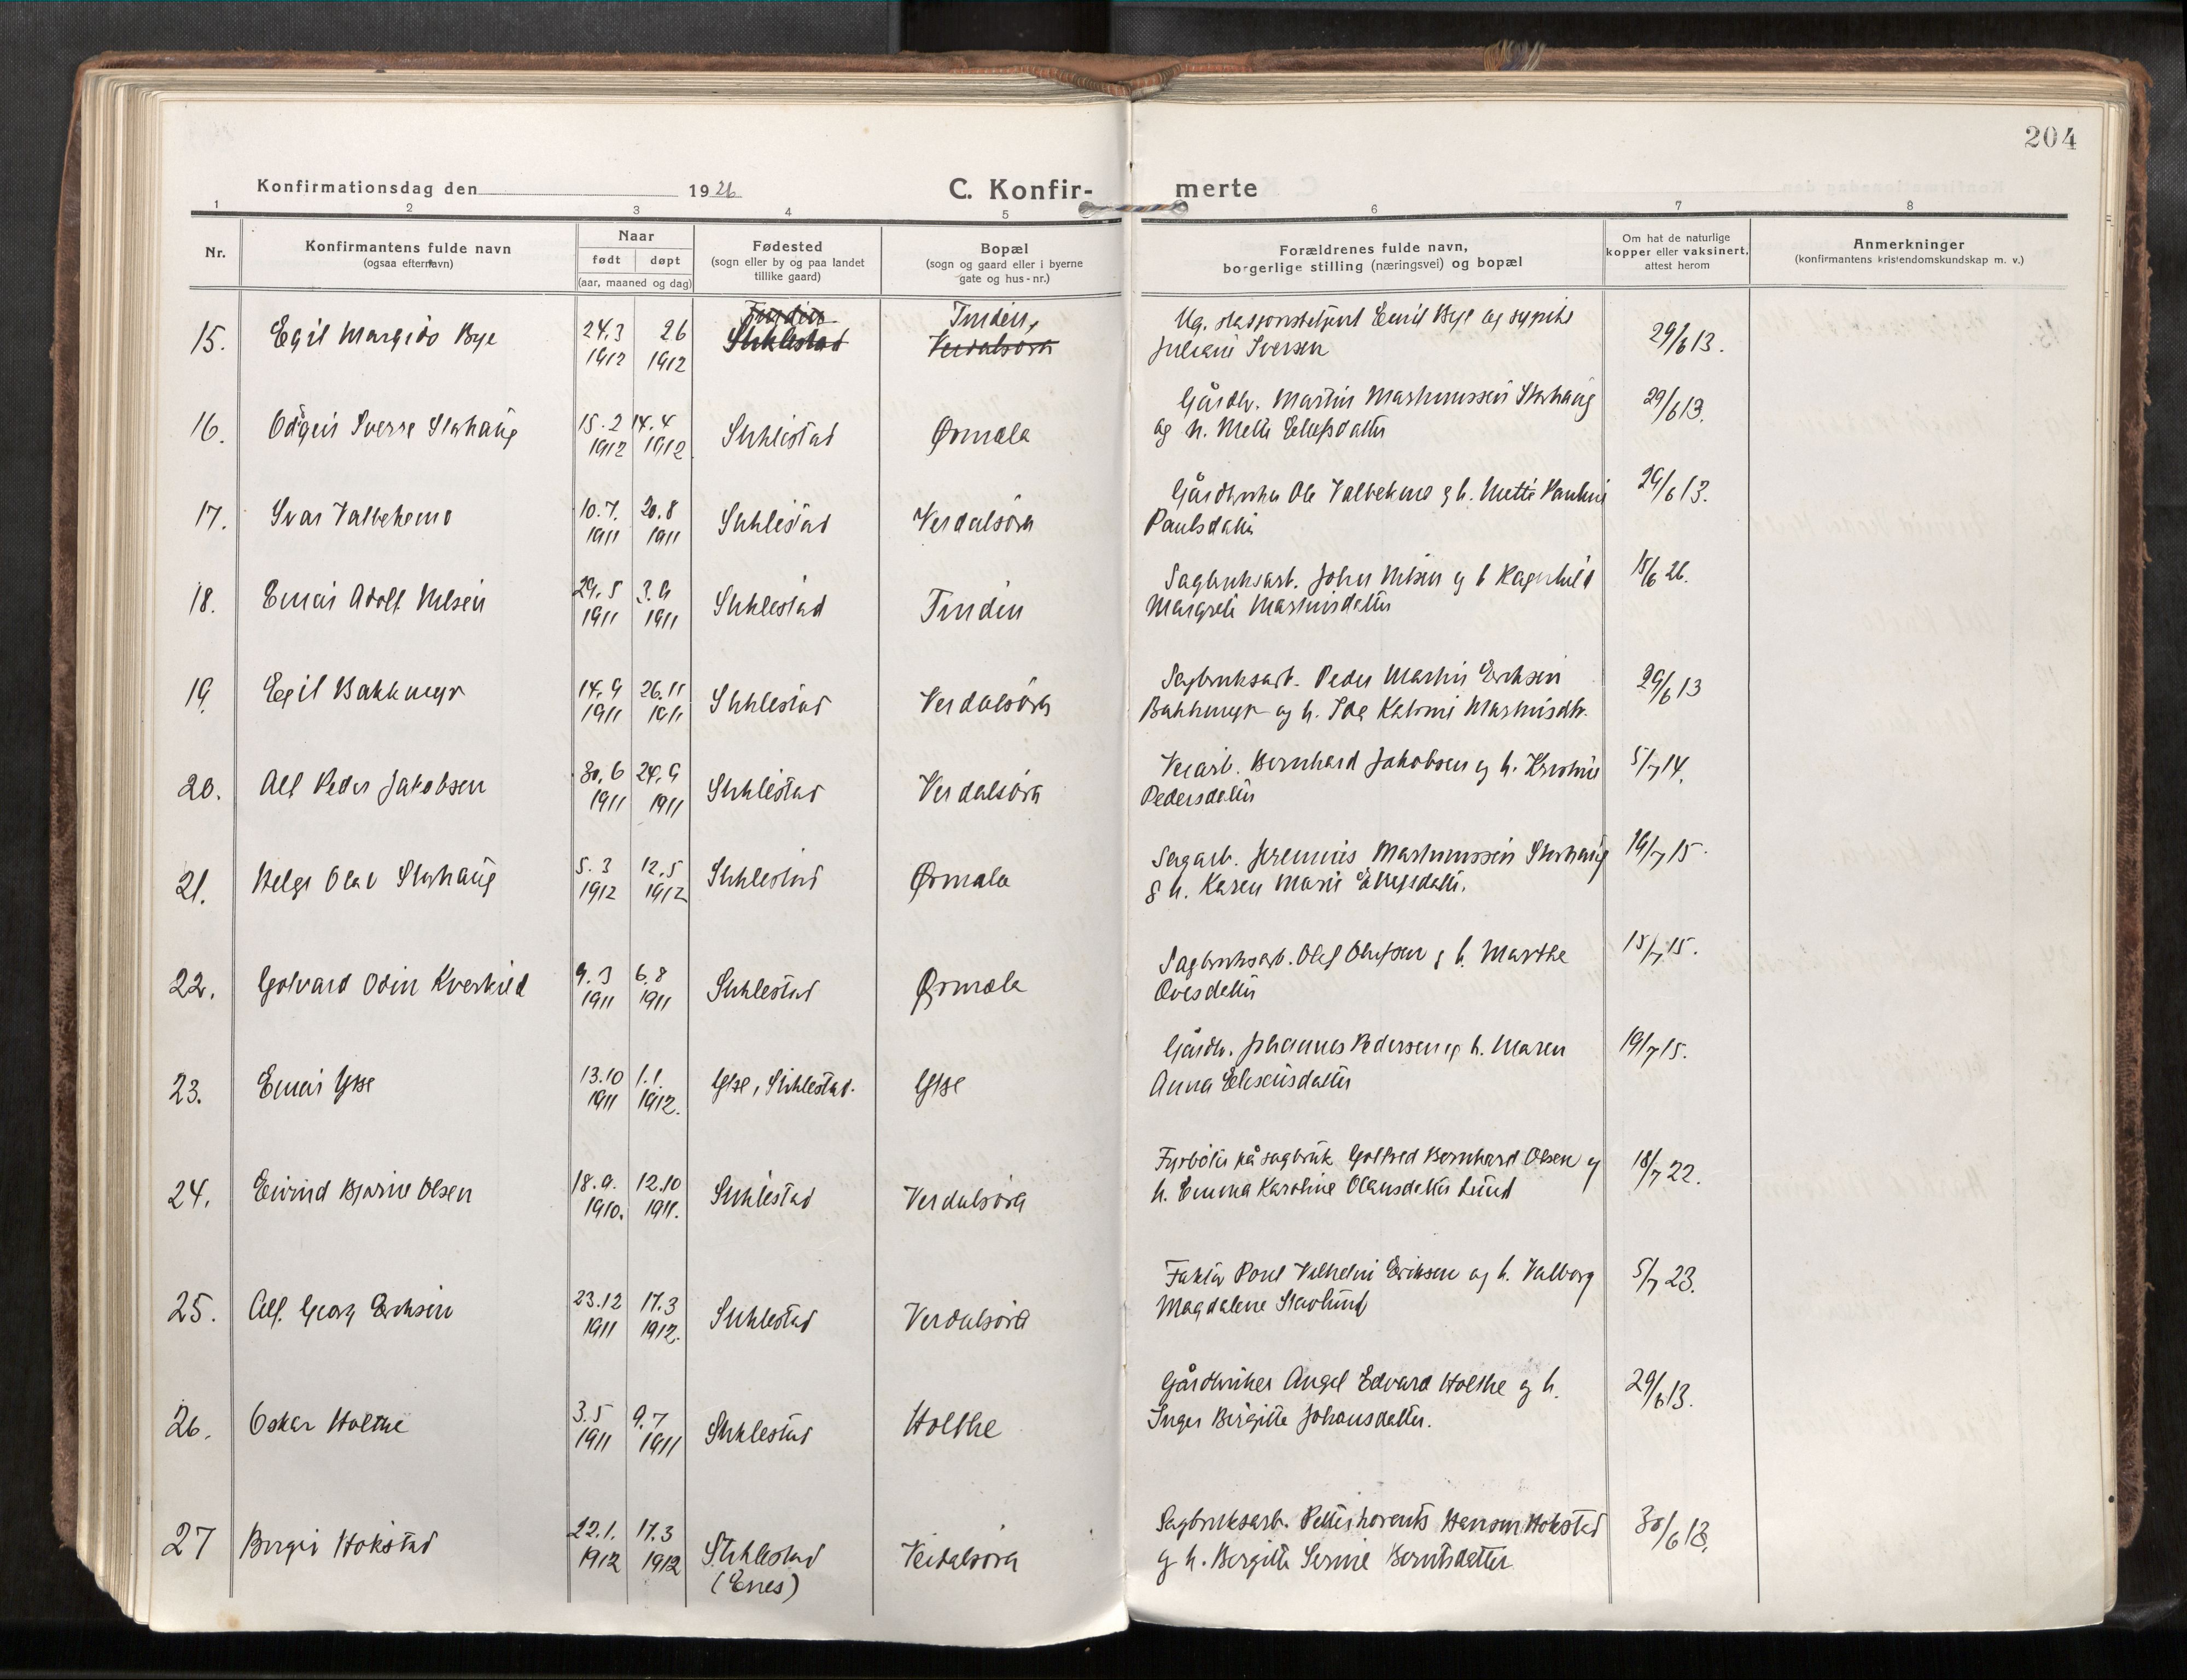 204
Konfirmationsdag den 1926 C. Konfir- merte
1 2 3 4 5 6 7 8
Nr.
Konfirmantens fulde navn
(ogsaa efternavn)
Naar
født døpt
(aar, maaned og dag)
Fødested
(sogn eller by og paa landet
tillike gaard)
Bopæl
(sogn og gaard eller i byerne
gate og hus-nr.)
Forældrenes fulde navn,
borgerlige stilling (næringsvei) og bopæl
Om hat de naturlige
kopper eller vaksinert,
attest herom
Anmerkninger
(konfirmantens kristendomskundskap m. v.)
15. Egil Margido Bye 24.3 1912 26 1912 Tinden Stiklestad Tinden, Verdalsøra
Ug. stasjonsbetjent Emil Bye og sypike
Juliane Iversen 29/6 13.
16. Oddgeir Sverre Storhaug 15.2 1912 14.4 1912 Stiklestad Ørmæla
Gårdbr. Martin Martinussen Storhaug
og h. Mette Ellefsdatter 29/6 13.
17. Ivar Valbekmo 10.7. 1911 20.8 1911 Stiklestad Verdalsøra
Gårdbruker Ole Valbekmo og h. Mette Pauline
Paulsdatter 29/6 13.
18. Einar Adolf Nilsen 29.5 1911 3.9 1911 Stiklestad Tinden
Sagbruksarb. John Nilsen og h Ragnhild
Margrete Martinsdatter 15/6 26.
19. Egil Bakkmyr 14.9 1911 26.11 1911 Stiklestad Verdalsøra
Sagbruksarb. Peder Martin Eriksen
Bakkmyr og h. Ida Katrine Martinisdtr. 29/6 13
20. Alf Peder Jakobsen 30.6 1911 24.9 1911 Stiklestad Verdalsøra
Veiarb. Bernhard Jakobsen og h. Kristine
Pedersdatter 5/7 14.
21. Helge Olav Storhaug 5.3 1912 12.5 1912 Stiklestad Ørmæla
Sagarb. Jeremias Martinussen Storhaug
og h. Karen Marie Ellefsdatter. 19/7 15.
22. Golvard Odin Kverkild 9.3 1911 6.8 1911 Stiklestad Ørmæla
Sagbruksarb. Olaf Olufsen og h. Marthe
Ovesdatter 15/7 15.
23. Einar Gjse 13.10 1911 1.1. 1912. Stiklestad.
Gårdbr. Johannes Pedersen og h. Maren
Anna Elleseusdatter 19/7 15.
24. Eivind Bjarne Olsen 18.9. 1910. 12.10 1911. Stiklestad Verdalsøra
Fyrbøter på sagbruk Gotfred Bernhard Olsen og
h. Emma Karoline Olausdatter Lund 18/7 22.
25. Alf. Georg Eriksen 23.12 1911 17.3 1912. Stiklestad Verdalsøra
Faktor Poul Vilhelm Eriksen og h. Valborg
Magdalene Stavlund 5/7 23.
26. Oskar Holthe 3.5 1911 9.7 1911 Stiklestad Holthe
Gårdbruker Angel Edvard Holthe og h.
Inger Birgitte Johansdatter. 29/6 13.
27 Birger Hokstad 22.1. 1912 17.3 1912 Stiklestad (Eknes) Verdalsøra
Sagbruksarb. Petter Hansen Hokstad
og h. Bergitte Serine Berntsdatter 30/6 18.